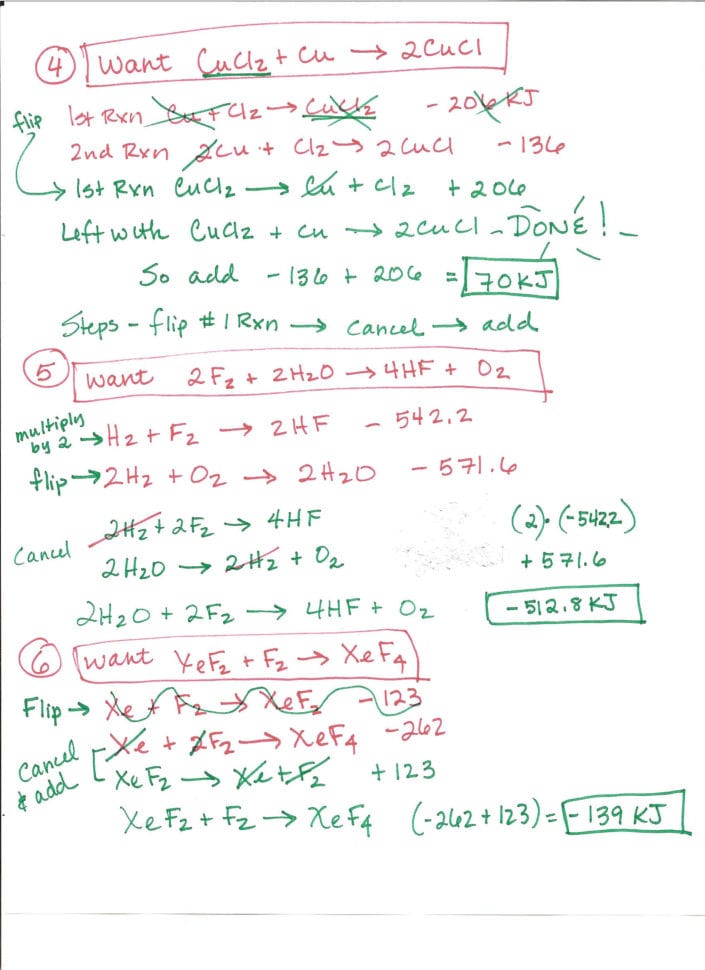 ④ Want CuCl2 + Cu → 2CuCl
flip 1st Rxn Cu + Cl2 → CuCl2 - 206 KJ
2nd Rxn 2Cu + Cl2 → 2CuCl - 136
→ 1st Rxn CuCl2 → Cu + Cl2 + 206
Left with CuCl2 + Cu → 2CuCl - DONE! -
So add - 136 + 206 = 70KJ
Steps - flip #1 Rxn → cancel → add
⑤ Want 2F2 + 2H2O → 4HF + O2
multiply by 2 → H2 + F2 → 2HF - 542.2
flip → 2H2 + O2 → 2H2O - 571.6
2H2 + 2F2 → 4HF (2)·(-542.2)
Cancel 2H2O → 2H2 + O2 + 571.6
2H2O + 2F2 → 4HF + O2 -512.8 KJ
⑥ Want XeF2 + F2 → XeF4
Flip → Xe + F2 → XeF2 - 123
Cancel & add Xe + 2F2 → XeF4 -262
XeF2 → Xe + F2 + 123
XeF2 + F2 → XeF4 (-262 + 123) = - 139 KJ